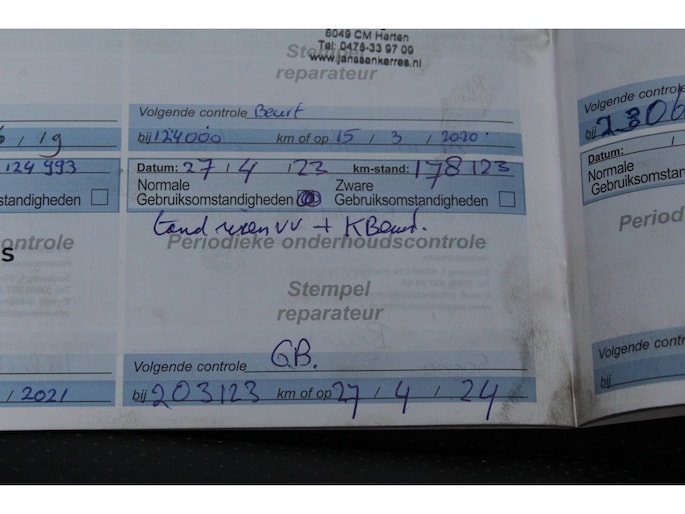 6049 CM Herten
Tel: 0475-33 97 09
www.janssenkerres.nl
Stempel
reparateur
Volgende controle Beurt
bij 124000 km of op 15 / 3 / 2020
/ 19
124 993
standigheden
ontrole
s
/ 2021
Datum: 27 / 4 / 23 km-stand: 178123
Normale
Gebruiksomstandigheden
Zware
Gebruiksomstandigheden
tand riem VV + K Beurt.
Periodieke onderhoudscontrole
Stempel
reparateur
Volgende controle G.B.
bij 203123 km of op 27 / 4 / 24
Volgende contr
bij 2306
Datum: /
Normale
Gebruiksomstan
Periodi
Volgende contr
bij